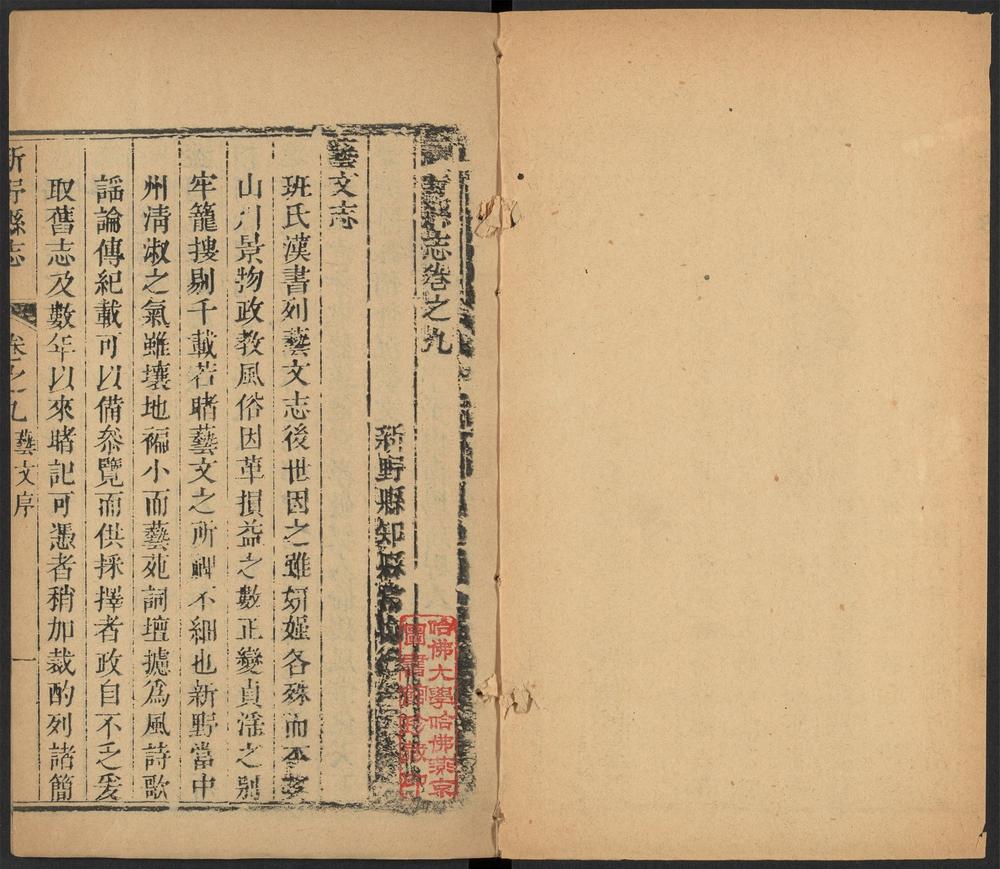 志卷之九
新野縣知縣
藝文志
班氏漢書列藝文志後世因之雖妍媸各殊而
山川景物政教風俗因革損益之數正變貞淫之別
牢籠搜剔千載若睹藝文之所裨不細也新野當中
州清淑之氣雖壤地褊小而藝苑詞壇摅為風詩歌
謡論傳紀載可以備叅覽而供採擇者政自不乏爰
取舊志及數年以來睹記可憑者稍加裁酌列諸簡
新野縣志
卷之九
藝文序
一
哈佛大學哈佛燕京
圖書館珍藏印